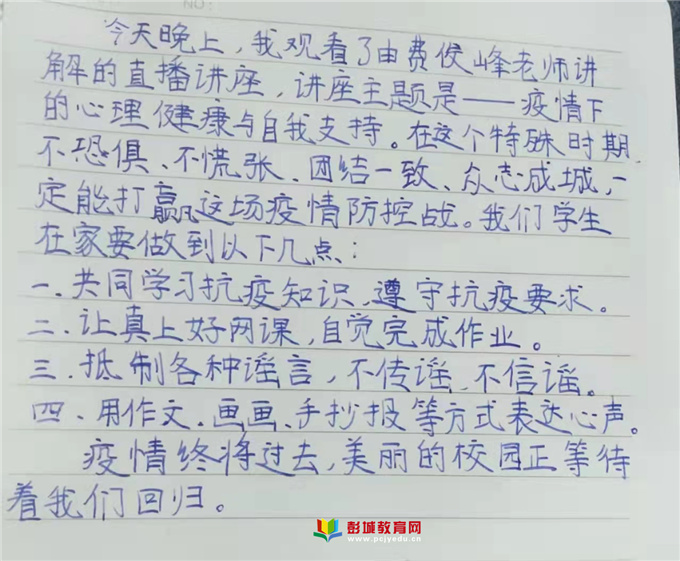 今天晚上，我观看了由费俊峰老师讲
解的直播讲座，讲座主题是——疫情下
的心理健康与自我支持。在这个特殊时期，
不恐惧、不慌张、团结一致、众志成城，一
定能打赢这场疫情防控战。我们学生
在家要做到以下几点：
一.共同学习抗疫知识、遵守抗疫要求。
二.让真上好网课，自觉完成作业。
三.抵制各种谣言，不传谣、不信谣。
四、用作文、画画、手抄报等方式表达心声。
疫情终将过去，美丽的校园正等待
着我们回归。
彭城教育网
www.pcjyedu.cn